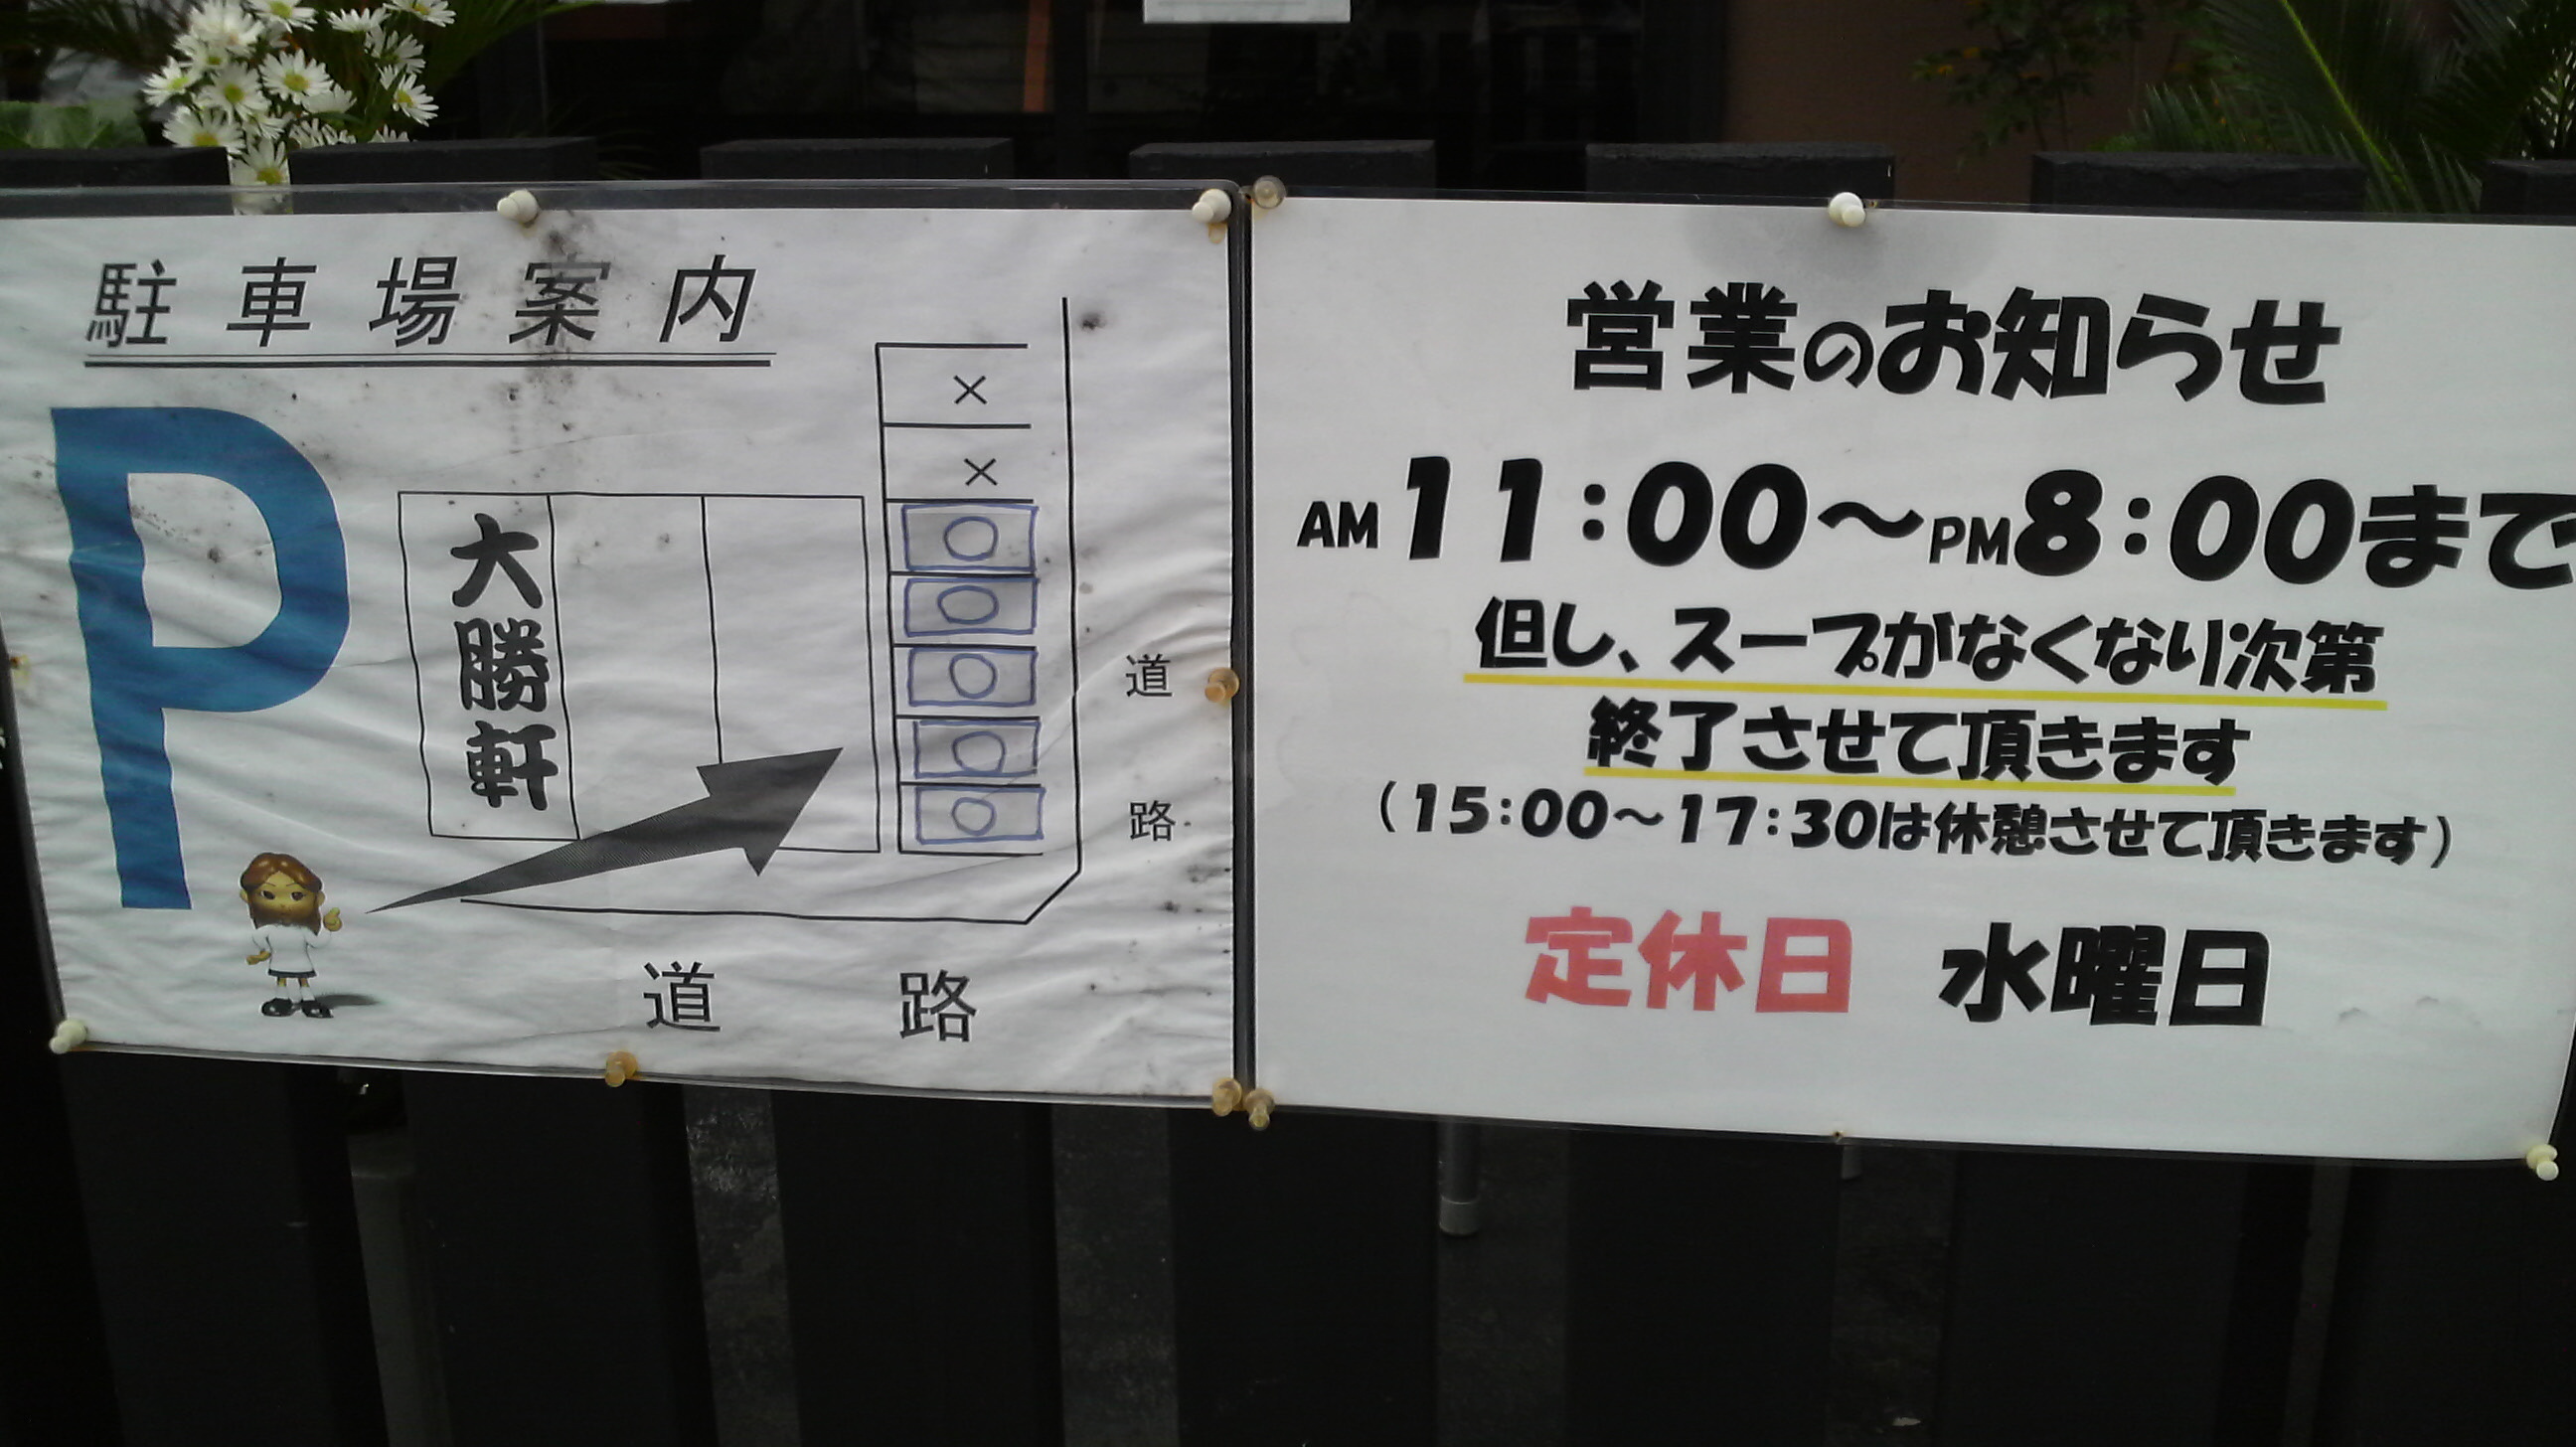 駐車場案内
P
大勝軒
×
×
○
○
○
○
○
道路
道路
営業のお知らせ
AM11:00～PM8:00まで
但し、スープがなくなり次第
終了させて頂きます
(15:00～17:30は休憩させて頂きます)
定休日 水曜日